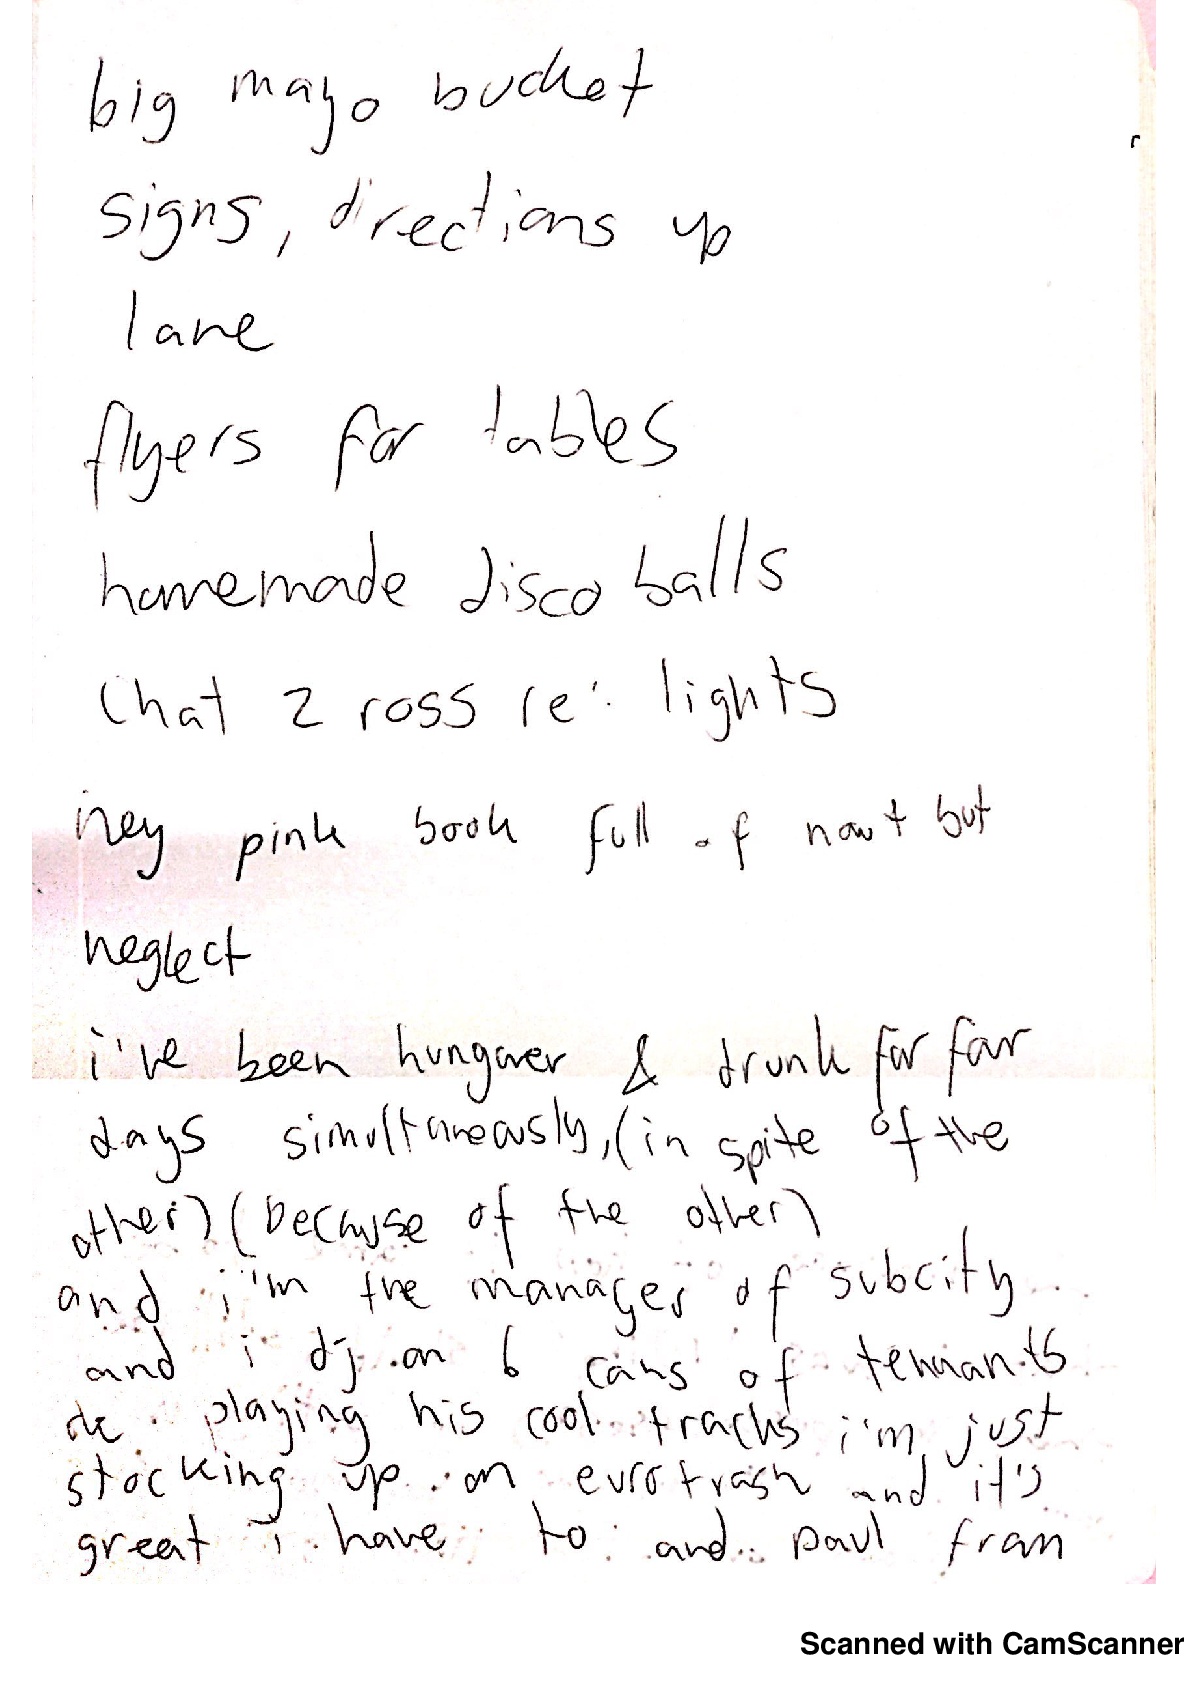 big mayo bucket
signs, directions up
lane
flyers for tables
homemade disco balls
chat 2 ross re: lights
hey pink book full of nowt but
neglect
i've been hungover & drunk for four
days simultaneously, (in spite of the
other) (because of the other)
and i'm the manager of subcity
and i dj on 6 cans of tennants
playing his cool tracks i'm just
stocking up on eurotrash and it's
great i have to and paul from
Scanned with CamScanner